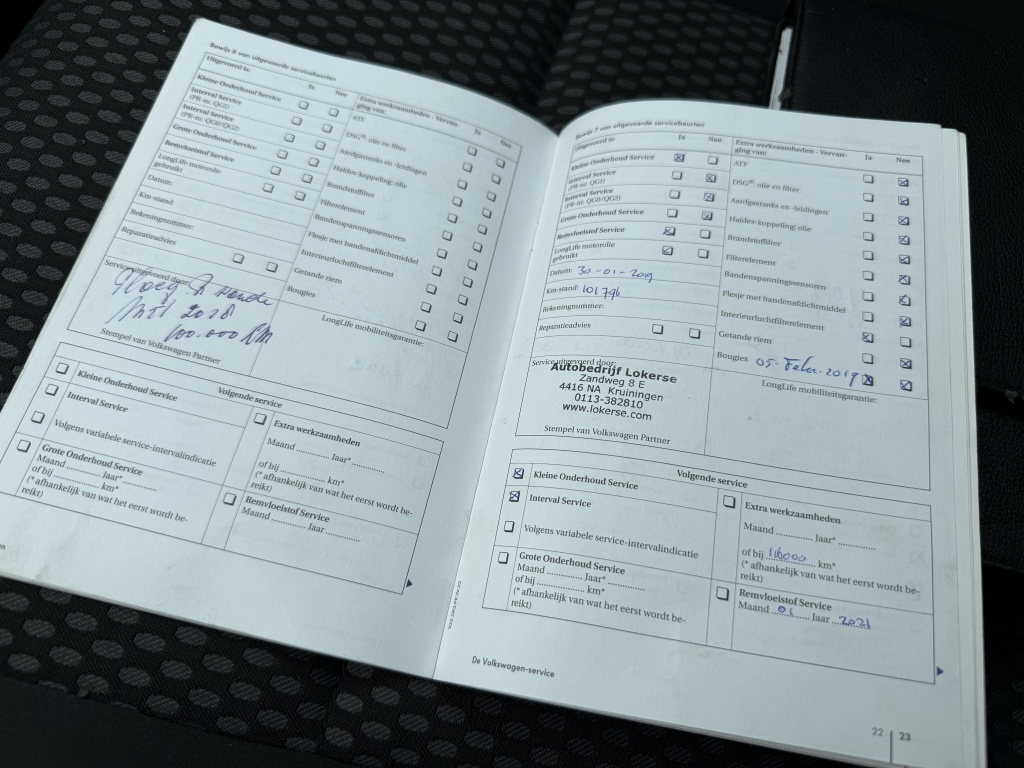 Bewijs 6 van uitgevoerde servicebeurten
Uitgevoerd is:
Ja Nee
Kleine Onderhoud Service
Interval Service
(PR-nr. QG1)
Interval Service
(PR-nr. QG0/QG2)
Grote Onderhoud Service
Remvloeistof Service
LongLife motorolie
gebruikt
Datum:
Km-stand:
Rekeningnummer:
Reparatieadvies
Service uitgevoerd door:
100.000 KM
Stempel van Volkswagen Partner
Extra werkzaamheden - Vervan-
ging van:
Ja Nee
ATF
DSG®: olie en filter
Aardgastanks en -leidingen
Haldex-koppeling: olie
Brandstoffilter
Filterelement
Bandenspanningssensoren
Flesje met bandenafdichtmiddel
Interieurluchtfilterelement
Getande riem
Bougies
LongLife mobiliteitsgarantie:
Volgende service
Kleine Onderhoud Service
Interval Service
Volgens variabele service-intervalindicatie
Grote Onderhoud Service
Maand .............. Jaar* ..............
of bij .............. km*
(* afhankelijk van wat het eerst wordt be-
reikt)
Extra werkzaamheden
Maand .............. Jaar* ..............
of bij .............. km*
(* afhankelijk van wat het eerst wordt be-
reikt)
Remvloeistof Service
Maand .............. Jaar ..............
Bewijs 7 van uitgevoerde servicebeurten
Uitgevoerd is:
Ja Nee
Kleine Onderhoud Service
Interval Service
(PR-nr. QG1)
Interval Service
(PR-nr. QG0/QG2)
Grote Onderhoud Service
Remvloeistof Service
LongLife motorolie
gebruikt
Datum: 30-01-2019
Km-stand: 101796
Rekeningnummer:
Reparatieadvies
Service uitgevoerd door:
Autobedrijf Lokerse
Zandweg 8 E
4416 NA Kruiningen
0113-382810
www.lokerse.com
Stempel van Volkswagen Partner
Extra werkzaamheden - Vervan-
ging van:
Ja Nee
ATF
DSG®: olie en filter
Aardgastanks en -leidingen
Haldex-koppeling: olie
Brandstoffilter
Filterelement
Bandenspanningssensoren
Flesje met bandenafdichtmiddel
Interieurluchtfilterelement
Getande riem
Bougies 05-Febr-2019
LongLife mobiliteitsgarantie:
Volgende service
Kleine Onderhoud Service
Interval Service
Volgens variabele service-intervalindicatie
Grote Onderhoud Service
Maand .............. Jaar* ..............
of bij .............. km*
(* afhankelijk van wat het eerst wordt be-
reikt)
Extra werkzaamheden
Maand .............. Jaar* ..............
of bij 116000 km*
(* afhankelijk van wat het eerst wordt be-
reikt)
Remvloeistof Service
Maand 01 Jaar 2021
De Volkswagen-service
22 23